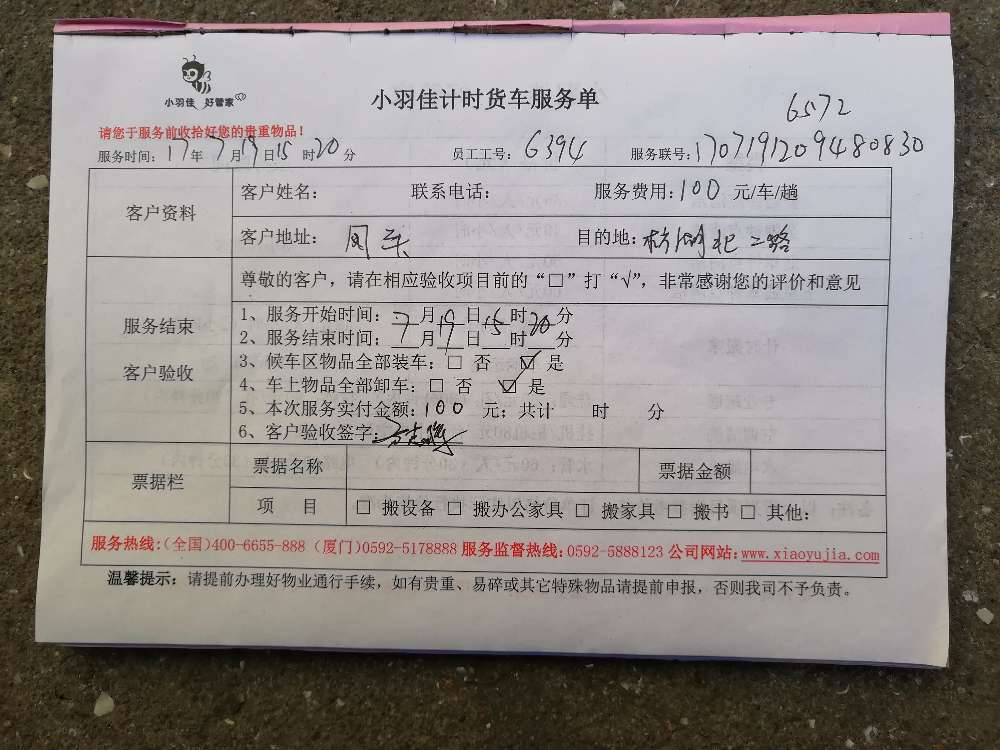 小羽佳 好管家
小羽佳计时货车服务单
6572
请您于服务前收拾好您的贵重物品！
服务时间：17年7月19日15时20分 员工工号：6394 服务联号：1707191209480830
客户资料
客户姓名： 联系电话： 服务费用：100元/车/趟
客户地址： 目的地：杏北二路
尊敬的客户，请在相应验收项目前的“□”打“√”，非常感谢您的评价和意见
服务结束
客户验收
1、服务开始时间：7月19日15时20分
2、服务结束时间：月日时分
3、候车区物品全部装车：□ 否 ☑ 是
4、车上物品全部卸车：□ 否 ☑ 是
5、本次服务实付金额：100 元；共计 时 分
6、客户验收签字：
票据栏
票据名称 票据金额
项 目 □ 搬设备 □ 搬办公家具 □ 搬家具 □ 搬书 □ 其他：
服务热线：(全国)400-6655-888（厦门)0592-5178888 服务监督热线：0592-5888123 公司网站：www.xiaoyujia.com
温馨提示：请提前办理好物业通行手续，如有贵重、易碎或其它特殊物品请提前申报，否则我司不予负责。